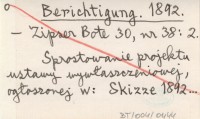 Berichtigung. 1892.
– Zipser Bote 30, nr 38: 2.
Sprostowanie projektu
ustawy wywłaszczeniowej,
ogłoszonej w: Skizze 1892...
BT/004/0444